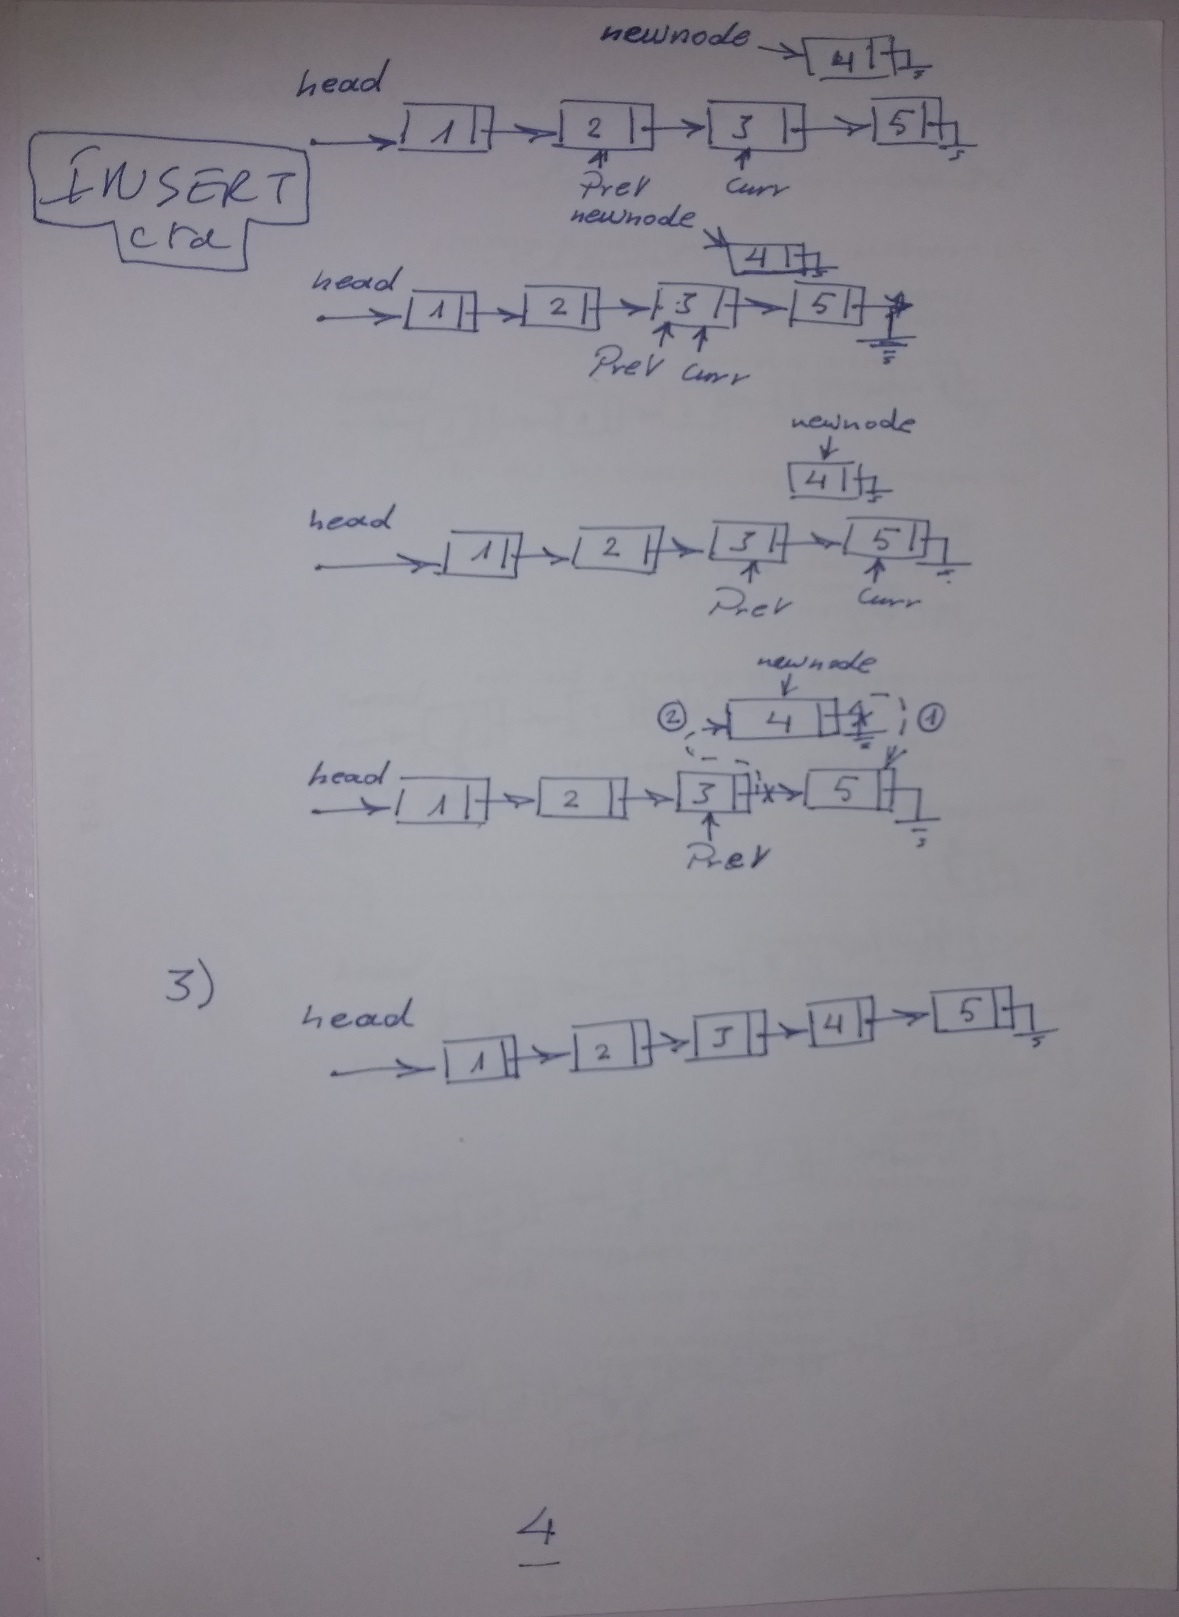 newnode 4
head
1 2 3 5
INSERT
Prev Curr
ctd
newnode
4
head
1 2 3 5
Prev Curr
newnode
4
head
1 2 3 5
Prev Curr
newnode
2 4 1
head
1 2 3 5
Prev
3)
head
1 2 3 4 5
4